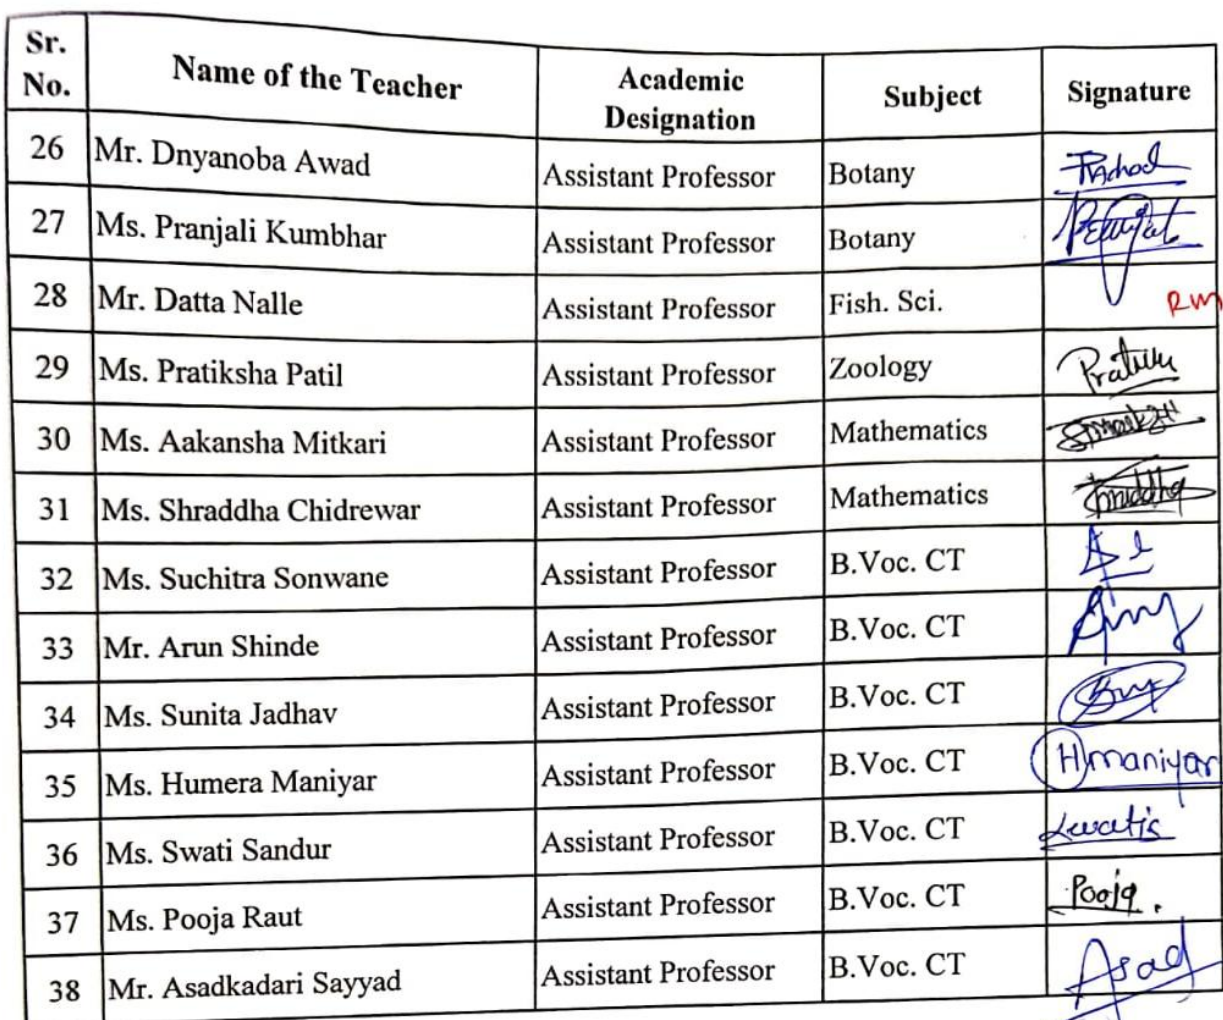 Sr. No. Name of the Teacher Academic Designation Subject Signature
26 Mr. Dnyanoba Awad Assistant Professor Botany
27 Ms. Pranjali Kumbhar Assistant Professor Botany
28 Mr. Datta Nalle Assistant Professor Fish. Sci. RM
29 Ms. Pratiksha Patil Assistant Professor Zoology
30 Ms. Aakansha Mitkari Assistant Professor Mathematics
31 Ms. Shraddha Chidrewar Assistant Professor Mathematics
32 Ms. Suchitra Sonwane Assistant Professor B.Voc. CT
33 Mr. Arun Shinde Assistant Professor B.Voc. CT
34 Ms. Sunita Jadhav Assistant Professor B.Voc. CT
35 Ms. Humera Maniyar Assistant Professor B.Voc. CT Hmaniyar
36 Ms. Swati Sandur Assistant Professor B.Voc. CT
37 Ms. Pooja Raut Assistant Professor B.Voc. CT Pooja.
38 Mr. Asadkadari Sayyad Assistant Professor B.Voc. CT Asad